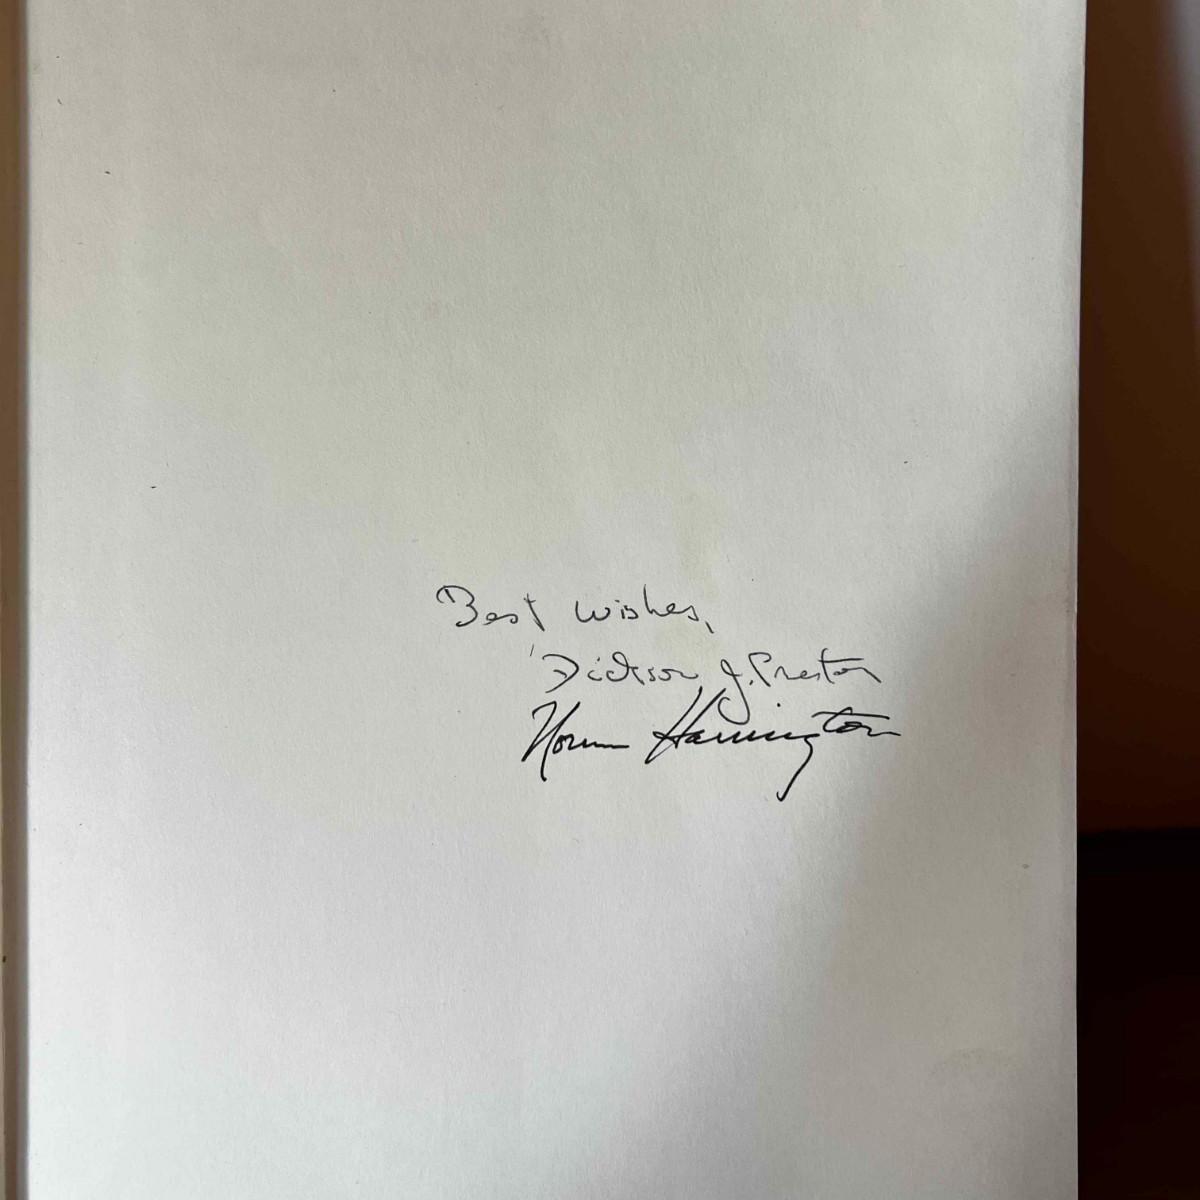 Best wishes,
Dickson J. Preston
Norman Harrington